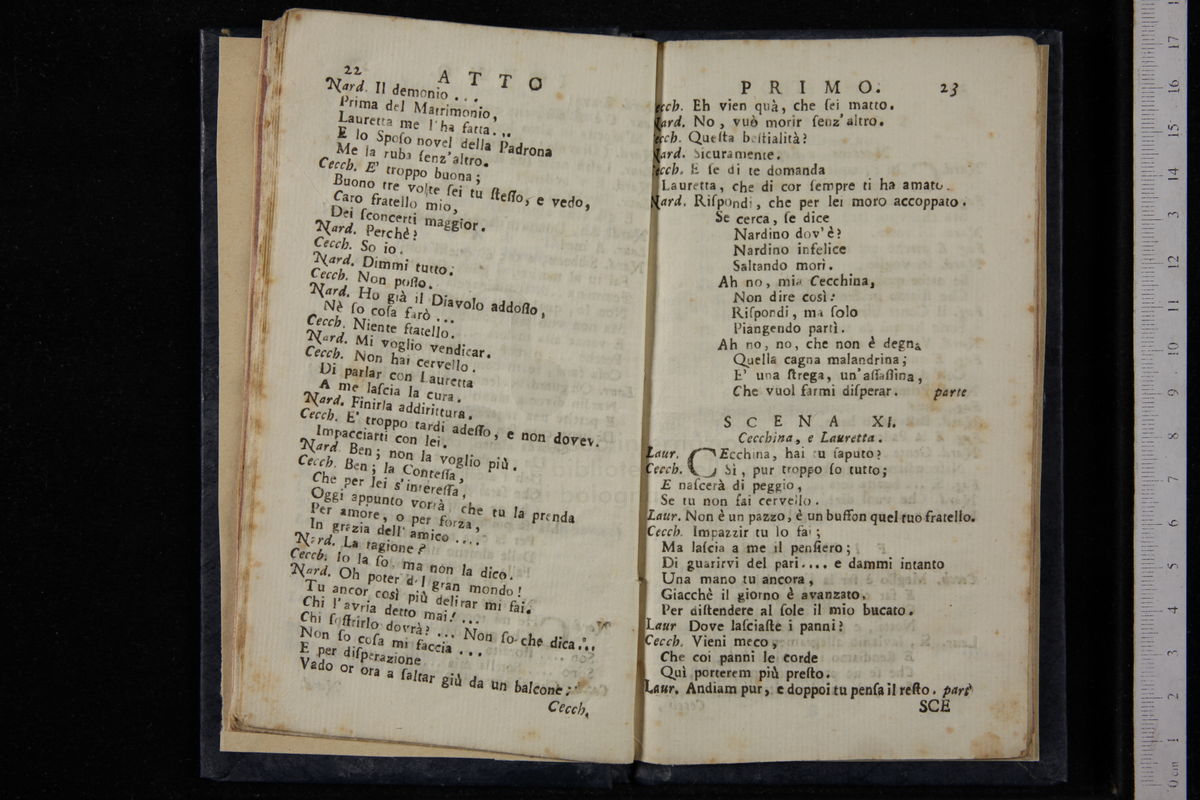 22
ATTO
Nard. Il demonio . . .
Prima del Matrimonio,
Lauretta me l'ha fatta. . .
E lo Spoſo novel della Padrona
Me la ruba ſenz'altro.
Cecch. E' troppo buona ;
Buono tre volte ſei tu ſteſſo, e vedo,
Caro fratello mio,
Dei ſconcerti maggior.
Nard. Perchè ?
Cecch. So io.
Nard. Dimmi tutto.
Cecch. Non poſſo.
Nard. Ho già il Diavolo addoſſo,
Nè ſo coſa farò . . .
Cecch. Niente fratello.
Nard. Mi voglio vendicar.
Cecch. Non hai cervello.
Di parlar con Lauretta
A me laſcia la cura.
Nard. Finirla addirittura.
Cecch. E' troppo tardi adeſſo, e non dovev.
Impacciarti con lei.
Nard. Ben ; non la voglio più.
Cecch. Ben ; la Conteſſa,
Che per lei s'intereſſa,
Oggi appunto vorrà, che tu la prenda
Per amore, o per forza,
In grazia dell' amico . . . .
Nard. La ragione ?
Cecch. Io la ſo, ma non la dico.
Nard. Oh poter del gran mondo !
Tu ancor così più delirar mi fai.
Chi l'avria detto mai ! . . .
Chi ſoffrirlo dovrà ? . . . Non ſo che dica . . .
Non ſo coſa mi faccia . . .
E per diſperazione
Vado or ora a ſaltar giù da un balcone :
Cecch.
PRIMO.
23
ecch. Eh vien quà, che ſei matto.
Nard. No, vuò morir ſenz'altro.
ecch. Queſta beſtialità ?
Nard. Sicuramente.
Cecch. E ſe di te domanda
Lauretta, che di cor ſempre ti ha amato.
Nard. Riſpondi, che per lei moro accoppato.
Se cerca, ſe dice
Nardino dov'è ?
Nardino infelice
Saltando morì.
Ah no, mia Cecchina,
Non dire così :
Riſpondi, ma ſolo
Piangendo partì.
Ah no, no, che non è degna
Quella cagna malandrina ;
E' una ſtrega, un'aſſaſſina,
Che vuol farmi diſperar. parte
SCENA XI.
Cecchina, e Lauretta.
Laur. CEcchina, hai tu ſaputo ?
Cecch. Sì, pur troppo ſo tutto ;
E naſcerà di peggio,
Se tu non fai cervello.
Laur. Non è un pazzo, è un buffon quel tuo fratello.
Cecch. Impazzir tu lo fai ;
Ma laſcia a me il penſiero ;
Di guarirvi del pari. . . . e dammi intanto
Una mano tu ancora,
Giacchè il giorno è avanzato.
Per diſtendere al ſole il mio bucato.
Laur Dove laſciaſte i panni ?
Cecch. Vieni meco,
Che coi panni le corde
Quì porterem più preſto.
Laur. Andiam pur, e doppoi tu penſa il reſto. part
SCE